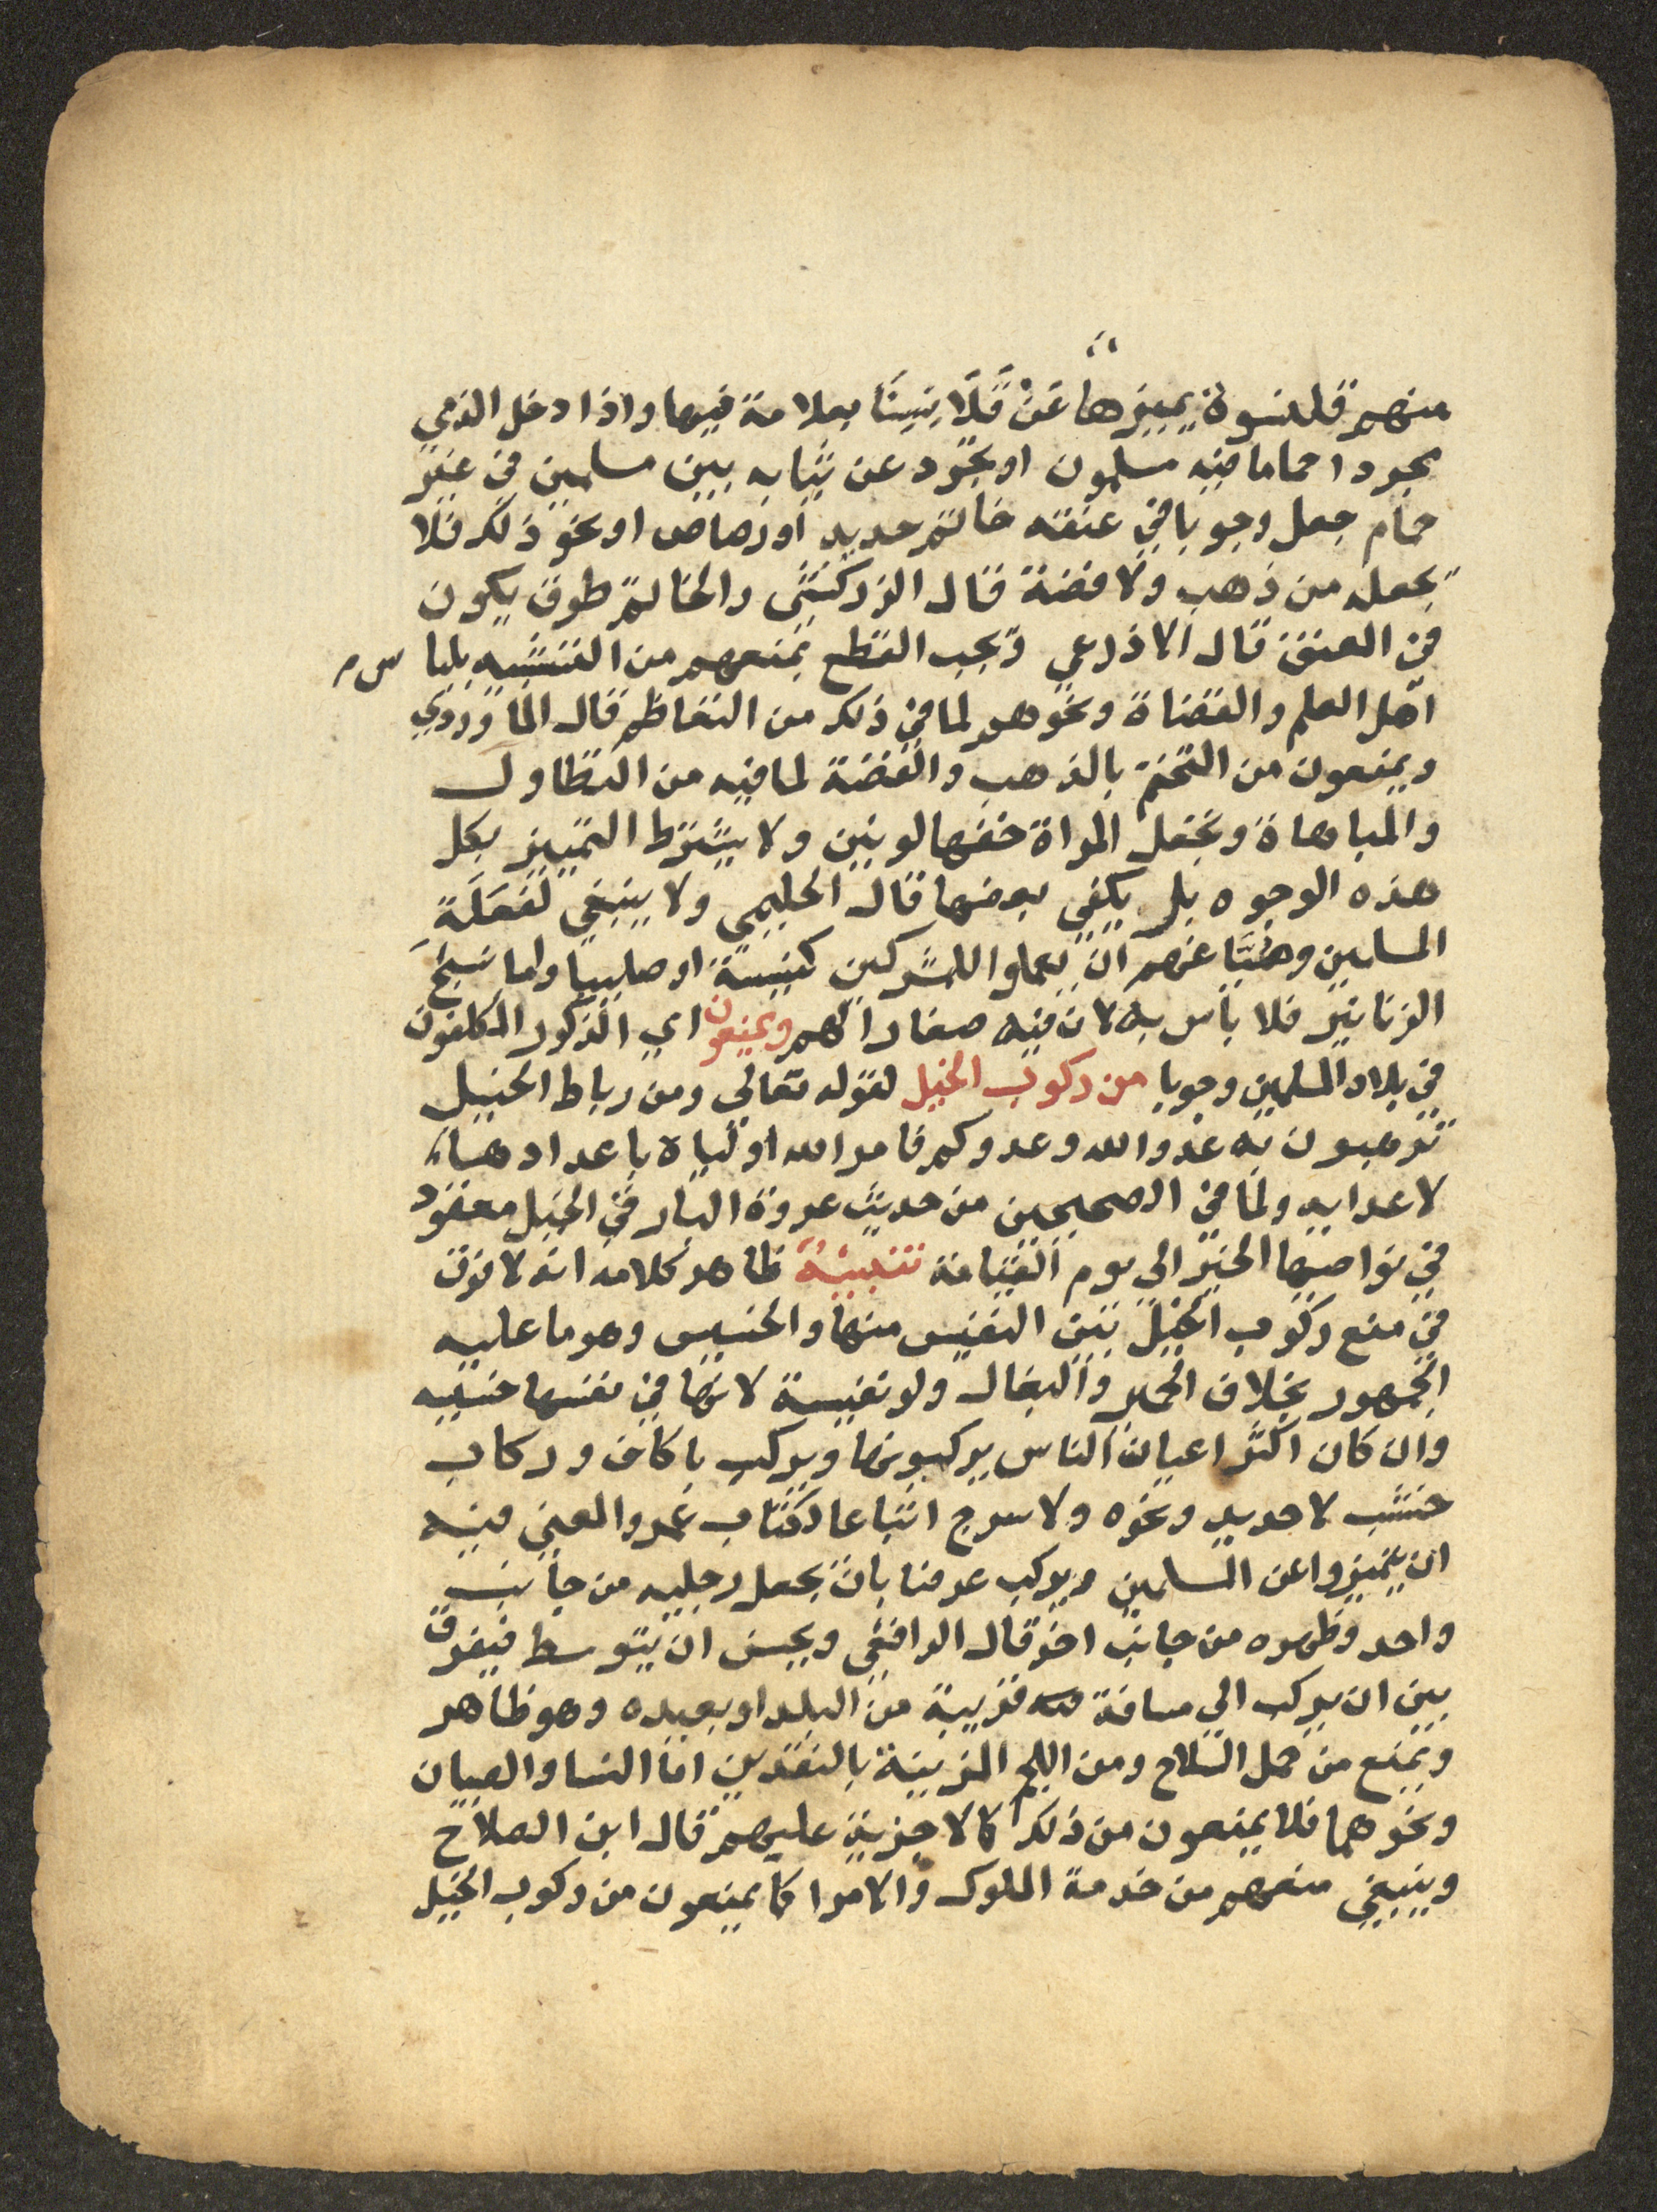 منهم قلنسوة يميزها عن قلانيسنا بعلامة فيها واذا دخل الذمي
مجردا حماما فيه مسلمون او تجرد عن ثيابه بين مسلمين في غير
حمام جعل وجوبا في عنقه خاتم حديد او رصاص او نحو ذلك فلا
يجعله من ذهب ولا فضة قال الزركشي والخاتم طوق يكون
في العنق قال الاذرعي ويجب القطع بمنعهم من التشبه بلبا س م
اهل العلم والقضاة ونحوهم لما في ذلك من التعاظم قال الماوردي
ويمنعون من التختم بالذهب والفضة لما فيه من التطاول
والمباهاة وتجعل المراة خفها لونين ولا يشترط التمييز بكل
هذه الوجوه بل يكفي بعضها قال الحليمي ولا ينبغي لفعلة
المسلمين وصُنّاعهم ان يعملوا للمشركين كنيسة او صليبا واما نسج
الزنانير فلا بأس به لان فيه صغارا لهم ويمنعون اي الذكور المكلفون
في بلاد المسلمين وجوبا من ركوب الخيل لقوله تعالى ومن رباط الخيل
ترهبون به عدو الله وعدوكم فامر الله اولياه باعدادها
لاعدايه ولما في الصحيحين من حديث عروة البار في الخيل معقود
في نواصيها الخير الى يوم القيامة تنبيه ظاهر كلامه انه لا فرق
في منع ركوب الخيل بين النفيس منها والخسيس وهو ما عليه
الجمهور بخلاف الحمير والبغال ولو نفيسة لانها في نفسها خسيسه
وان كان اكثر اعيان الناس يركبونها ويركب باكاف وركاب
خشب لا حديد ونحوه ولا سرج اتباعا لكتاب عمر والمعنى فيه
ان يتميزوا عن المسلمين ويركب عرضا بان يجعل رجليه من جانب
واحد وظهره من جانب اخر قال الرافعي ويحسن ان يتوسط فيفرق
بين ان يركب الى مسافة قريبة من البلد او بعيده وهو ظاهر
ويمنع من حمل السلاح ومن اللجم المزينة بالنقدين اما النسا والصبيان
ونحوهما فلا يمنعون من ذلك كما لا جزية عليهم قال ابن الصلاح
وينبغي منعهم من خدمة الملوك والامرا كما يمنعون من ركوب الخيل